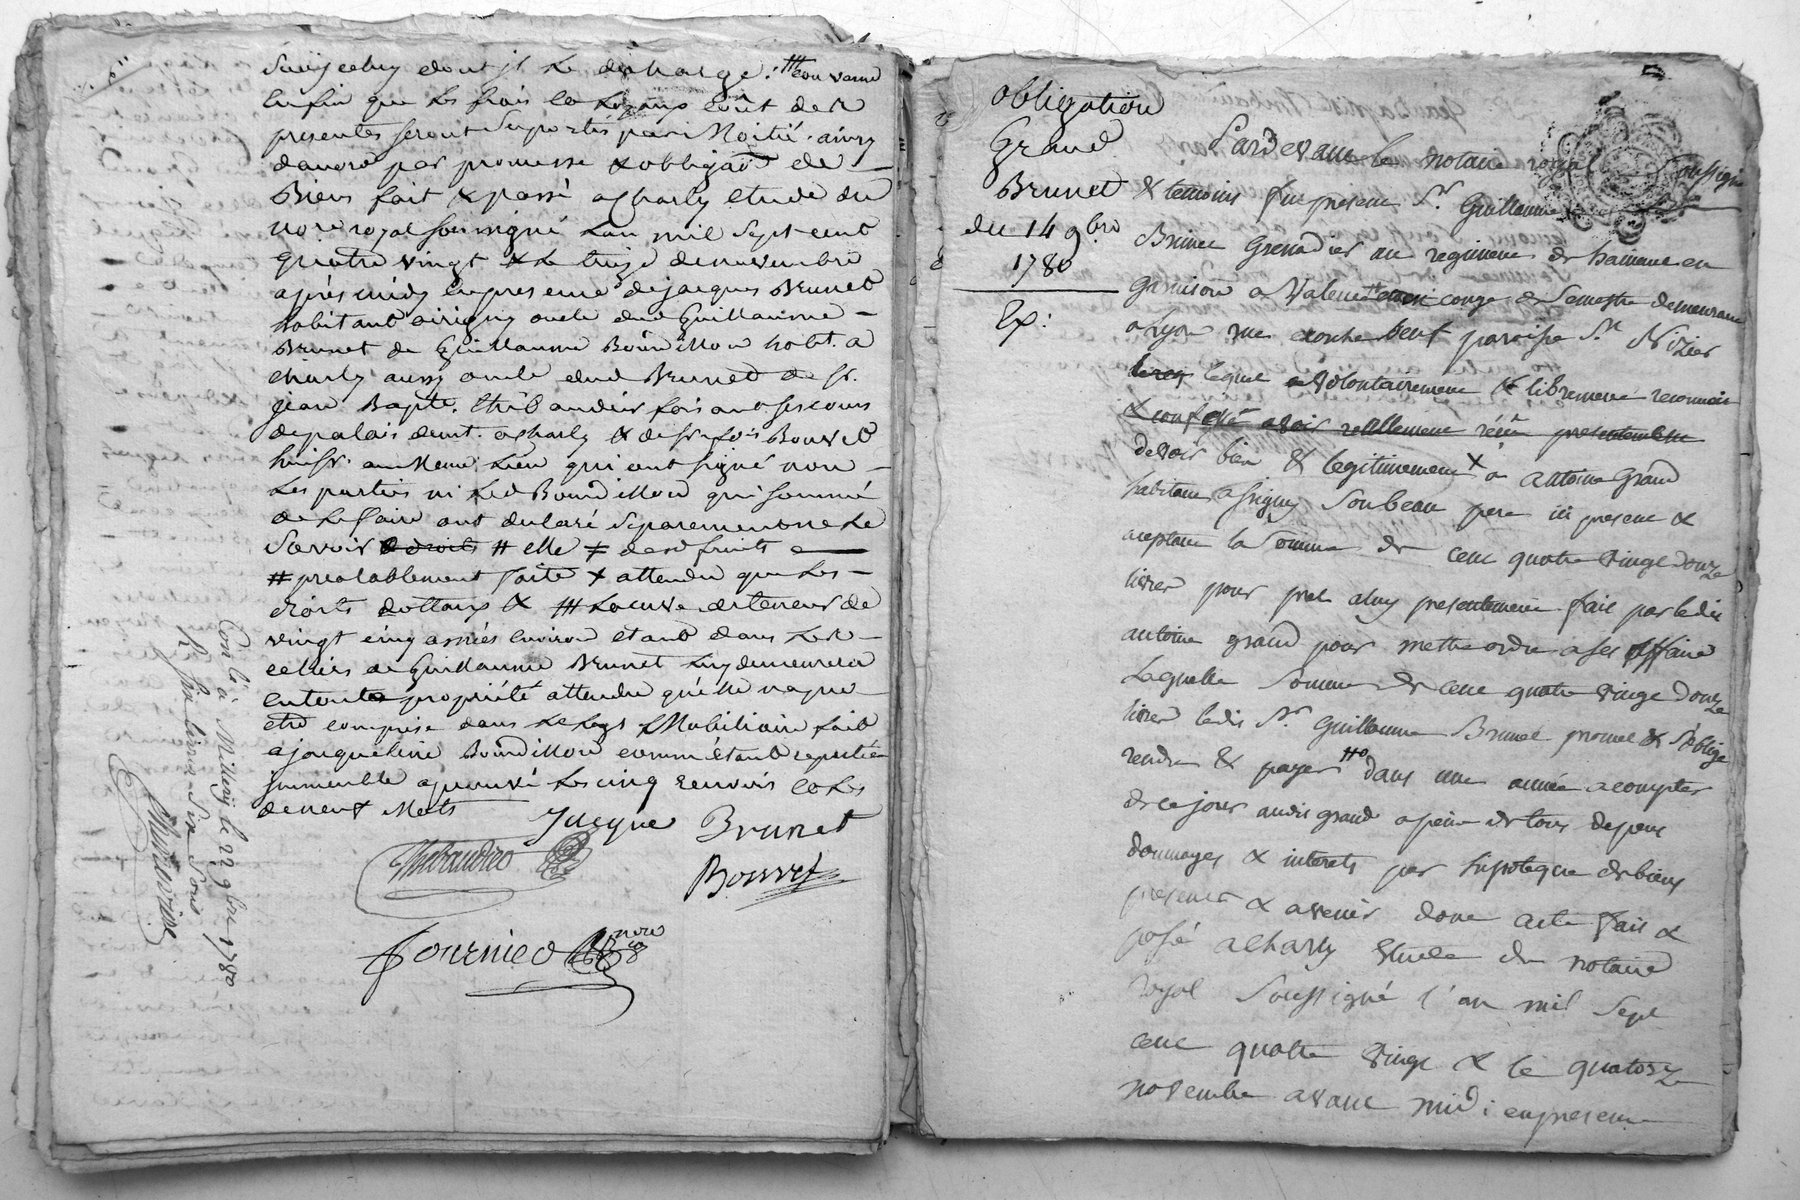 dont il le décharge. convenu
enfin que les frais et loyaux coût des
presentes seront suportés par moitié. ainsy
daccord par promesse & obligaõn de
Biens fait & passé a Charly etude du
nore royal soussigné Lan mil sept cent
quatre vingt & le treize de novembre
après midy en presence de jacques Brunet
habitant oncle dud Guillaume
Brunet de Guillaume Bourdillion habt. a
charly aussy oncle dud Brunet de sr.
jean Bapte. thibaudier
de palais demt. a charly & de sr fois Bouvet
huissr. au meme Lieu qui ont signé non
Les parties ni Led Bourdillion qui sommé
de le faire ont declaré separement ne le
savoir # elle ≠ desd fruits
# prealablement faite + attendu que Les
droits &
vingt cinq années environ etant dans
celier de Guillaume Brunet luy demeurera
en toute propriété attendu qu'elle na pue
etre comprise dans le Legs Mobiliaire fait
a jacqueline Bourdillion comme étant reputée
immeuble aprouvé les cinq renvois et les
de neuf Mots
Jacque Brunet
Thibaudier
Bouvet
Fournier nore
Conlé à Millery le 22 9bre 1780
R. six Sous
obligation
Grand
Brunet
du 14 9bre
1780
Ex:
Pardevant le notaire royal soussigné
& temoins fut présent Sr. Guillaume
Brunet Grenadier au regiment de hainaut en
garnison a Valence congé de Semestre demeurant
a Lyon rue ecorche beuf paroisse St. Nizier
lequel volontairement & librement reconnait
& confesse avoir reellement presentement
devoir bien & legitimement x a antoine Grand
habitant a Irigny Son beau pere ici present &
aceptant la Somme de cent quatre vingt douze
livres pour pret a luy presentement fait par ledit
antoine grand pour mettre ordre a ses affaires
Laquelle Somme de cent quatre vingt douze
livres ledit Sr Guillaume Brunet promet & s'oblige
rendre & payer dans une année a compter
de ce jour audit grand a peine de tous depens
dommages & interets par hipoteque de biens
presents & avenir dont acte fait &
passé a charly Etude du notaire
royal Soussigné l'an mil sept
cent quatre vingt & le quatorze
novembre avant midi en presence